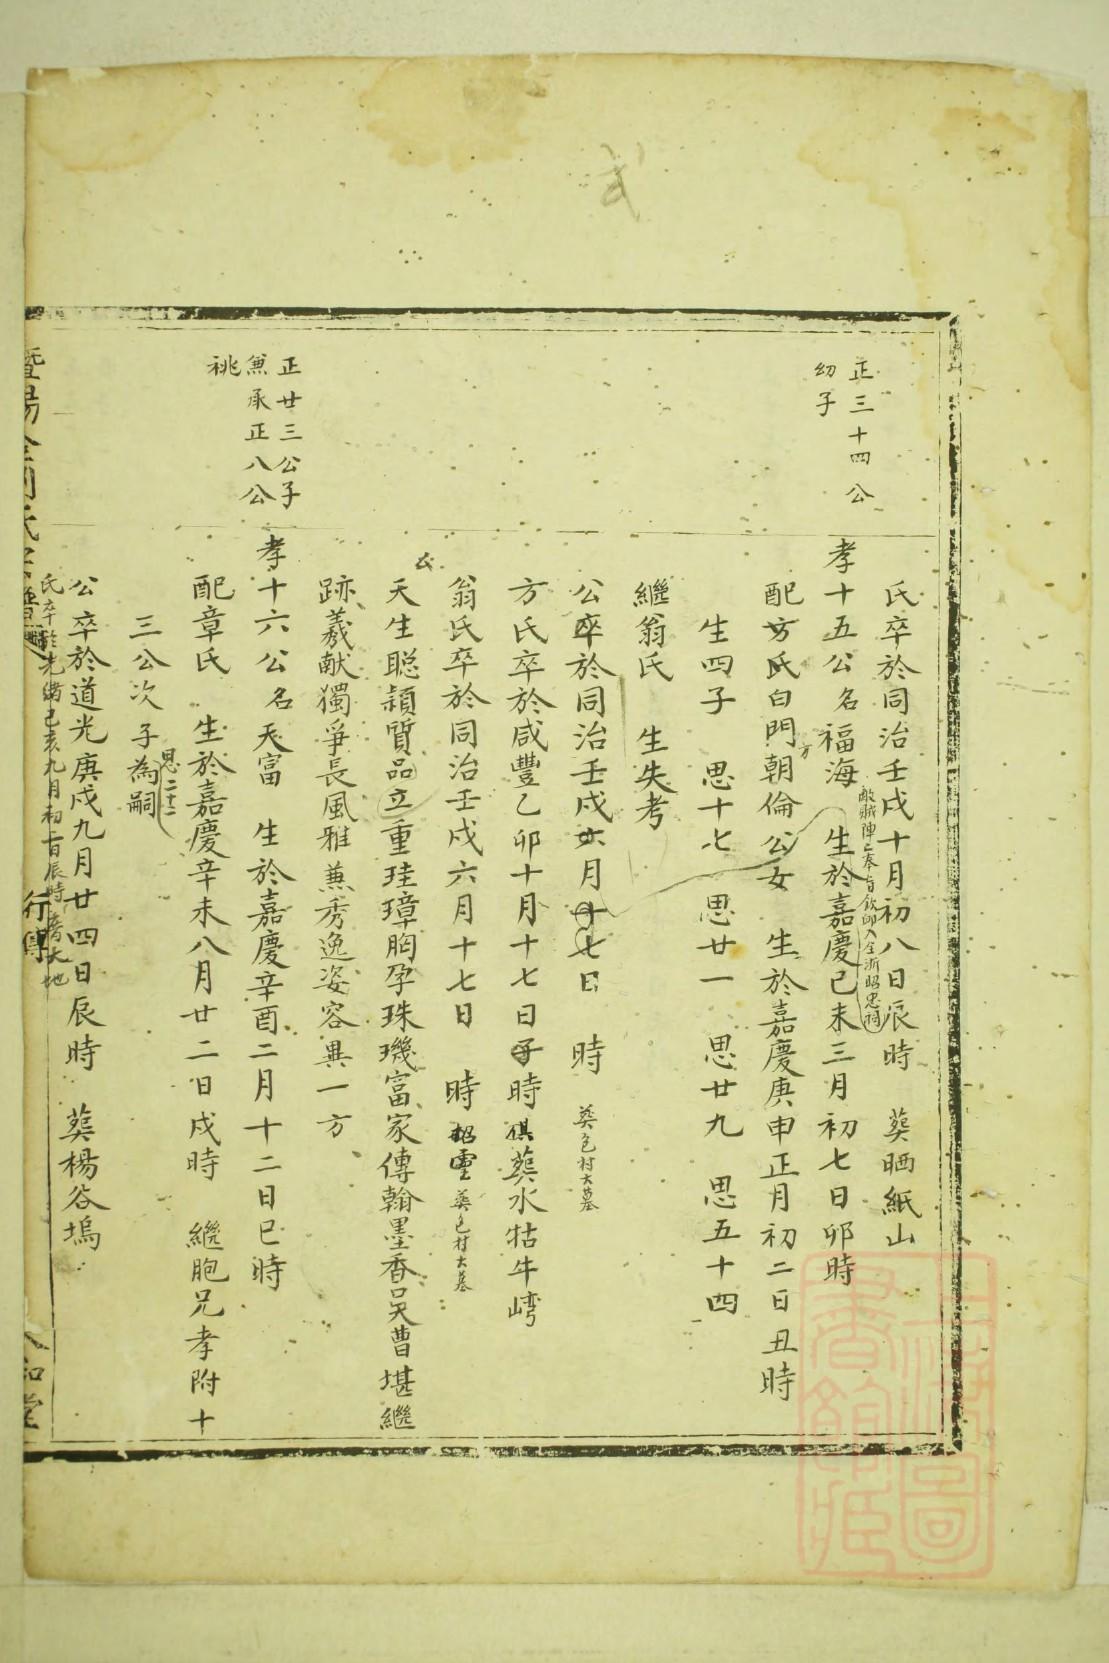 氏卒於同治壬戌十月初八日辰時　葬晒紙山
正三十四公
幼子
孝十五公名福海　生於嘉慶己未三月初七日卯時
敵賊陣亡奉旨欽卹入全浙昭忠祠
配方氏白門朝倫公女　生於嘉慶庚申正月初二日丑時
方
生四子　思十七　思廿一　思廿九　思五十四
繼翁氏　生失考
公卒於同治壬戌六月十七日　時　葬邑村大墓
方氏卒於咸豐乙卯十月十七日子時俱葬水牯牛嶹
翁氏卒於同治壬戌六月十七日　時　葬邑村大墓
天生聰穎質品立重珪璋胸孕珠璣富家傳翰墨香吳曹堪繼
跡羲献獨爭長風雅兼秀逸姿容異一方
正廿三公子
兼承正八公
祧
孝十六公名天富　生於嘉慶辛酉二月十二日巳時
配章氏　生於嘉慶辛未八月廿二日戌時　繼胞兄孝附十
三公次子為嗣
思二十二
公卒於道光庚戌九月廿四日辰時　葬楊谷塢
氏卒於光緒己亥九月初一日辰時
行傳